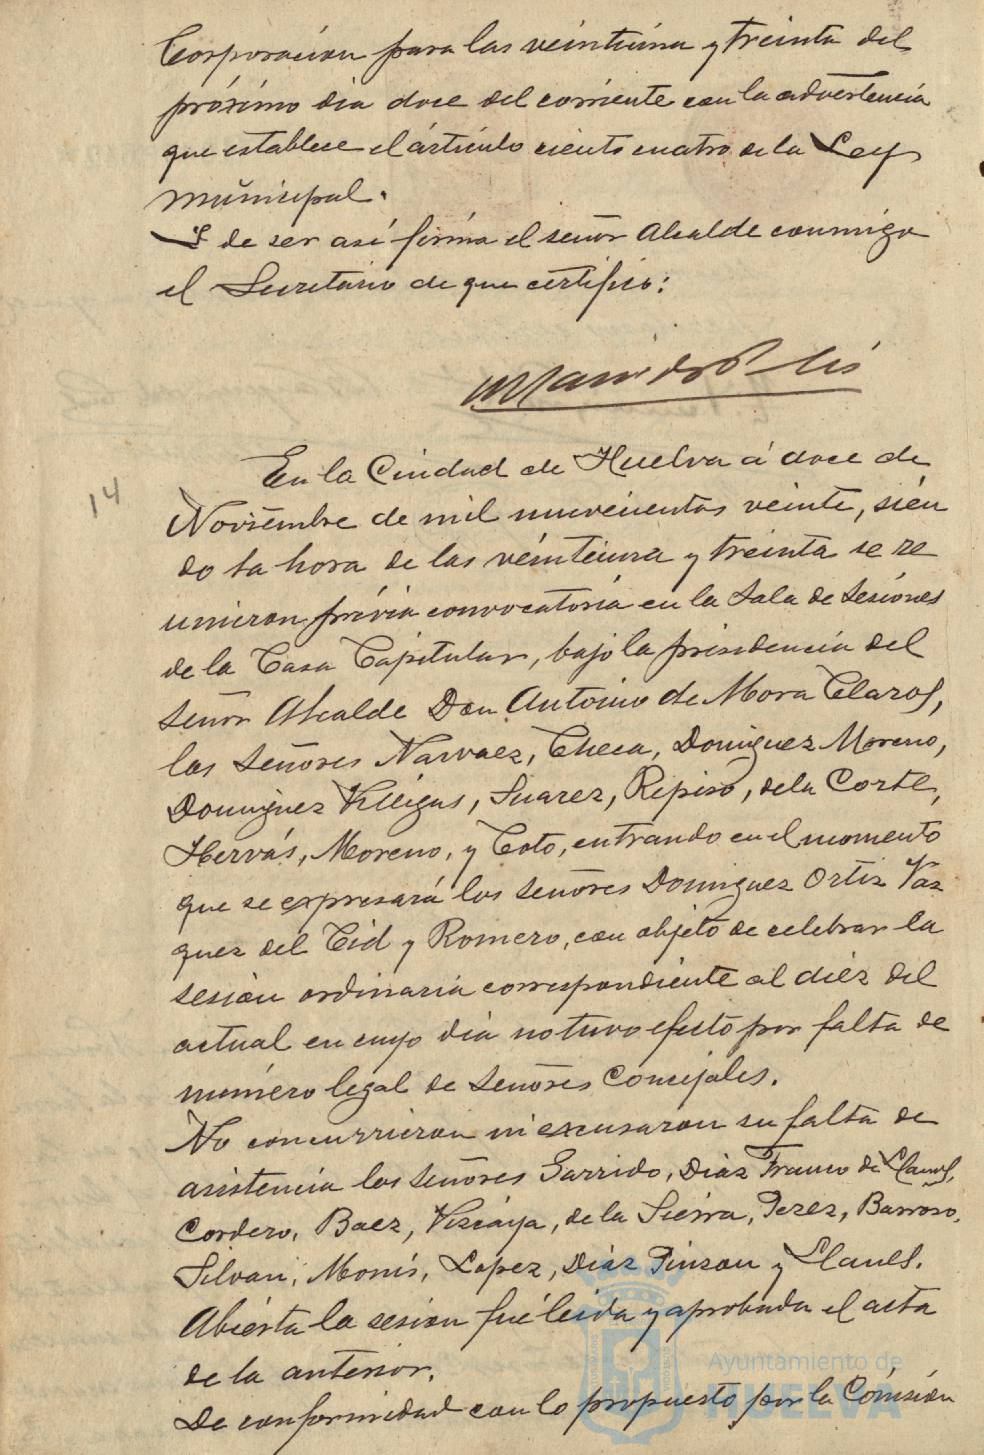 Corporacion para las veintiuna y treinta del
próximo dia doce del corriente con la advertencia
que establece el artículo ciento cuatro de la Ley
municipal.
Y de ser así firma el señor Alcalde conmigo
el Secretario de que certifico:
En la Ciudad de Huelva á doce de
14
Noviembre de mil nuevecientos veinte, sien
do la hora de las veintiuna y treinta se re
unieron prévia convocatoria en la Sala de Sesiones
de la Casa Capitular, bajo la presidencia del
señor Alcalde Don Antonio de Mora Claros,
los señores Narvaez, Checa, Dominguez Moreno,
Dominguez Villegas, Suarez, Repiso, de la Corte,
Hervás, Moreno, y Coto, entrando en el momento
que se expresará los señores Dominguez Ortiz Vaz
quez del Cid y Romero, con objeto de celebrar la
sesion ordinaria correspondiente al diéz del
actual en cuyo dia no tuvo efecto por falta de
número legal de Señores Concejales.
No concurrieron ni excusaron su falta de
asistencia los señores Garrido, Diáz Franco de Llanos,
Cordero, Baez, Viscaya, de la Sierra, Perez, Barroso,
Silvan, Monís, Lopez, Diáz Pinzon y Llanes.
Abierta la sesion fué leida y aprobada el acta
de la anterior.
De conformidad con lo propuesto por la Comisión
Ayuntamiento de
HUELVA